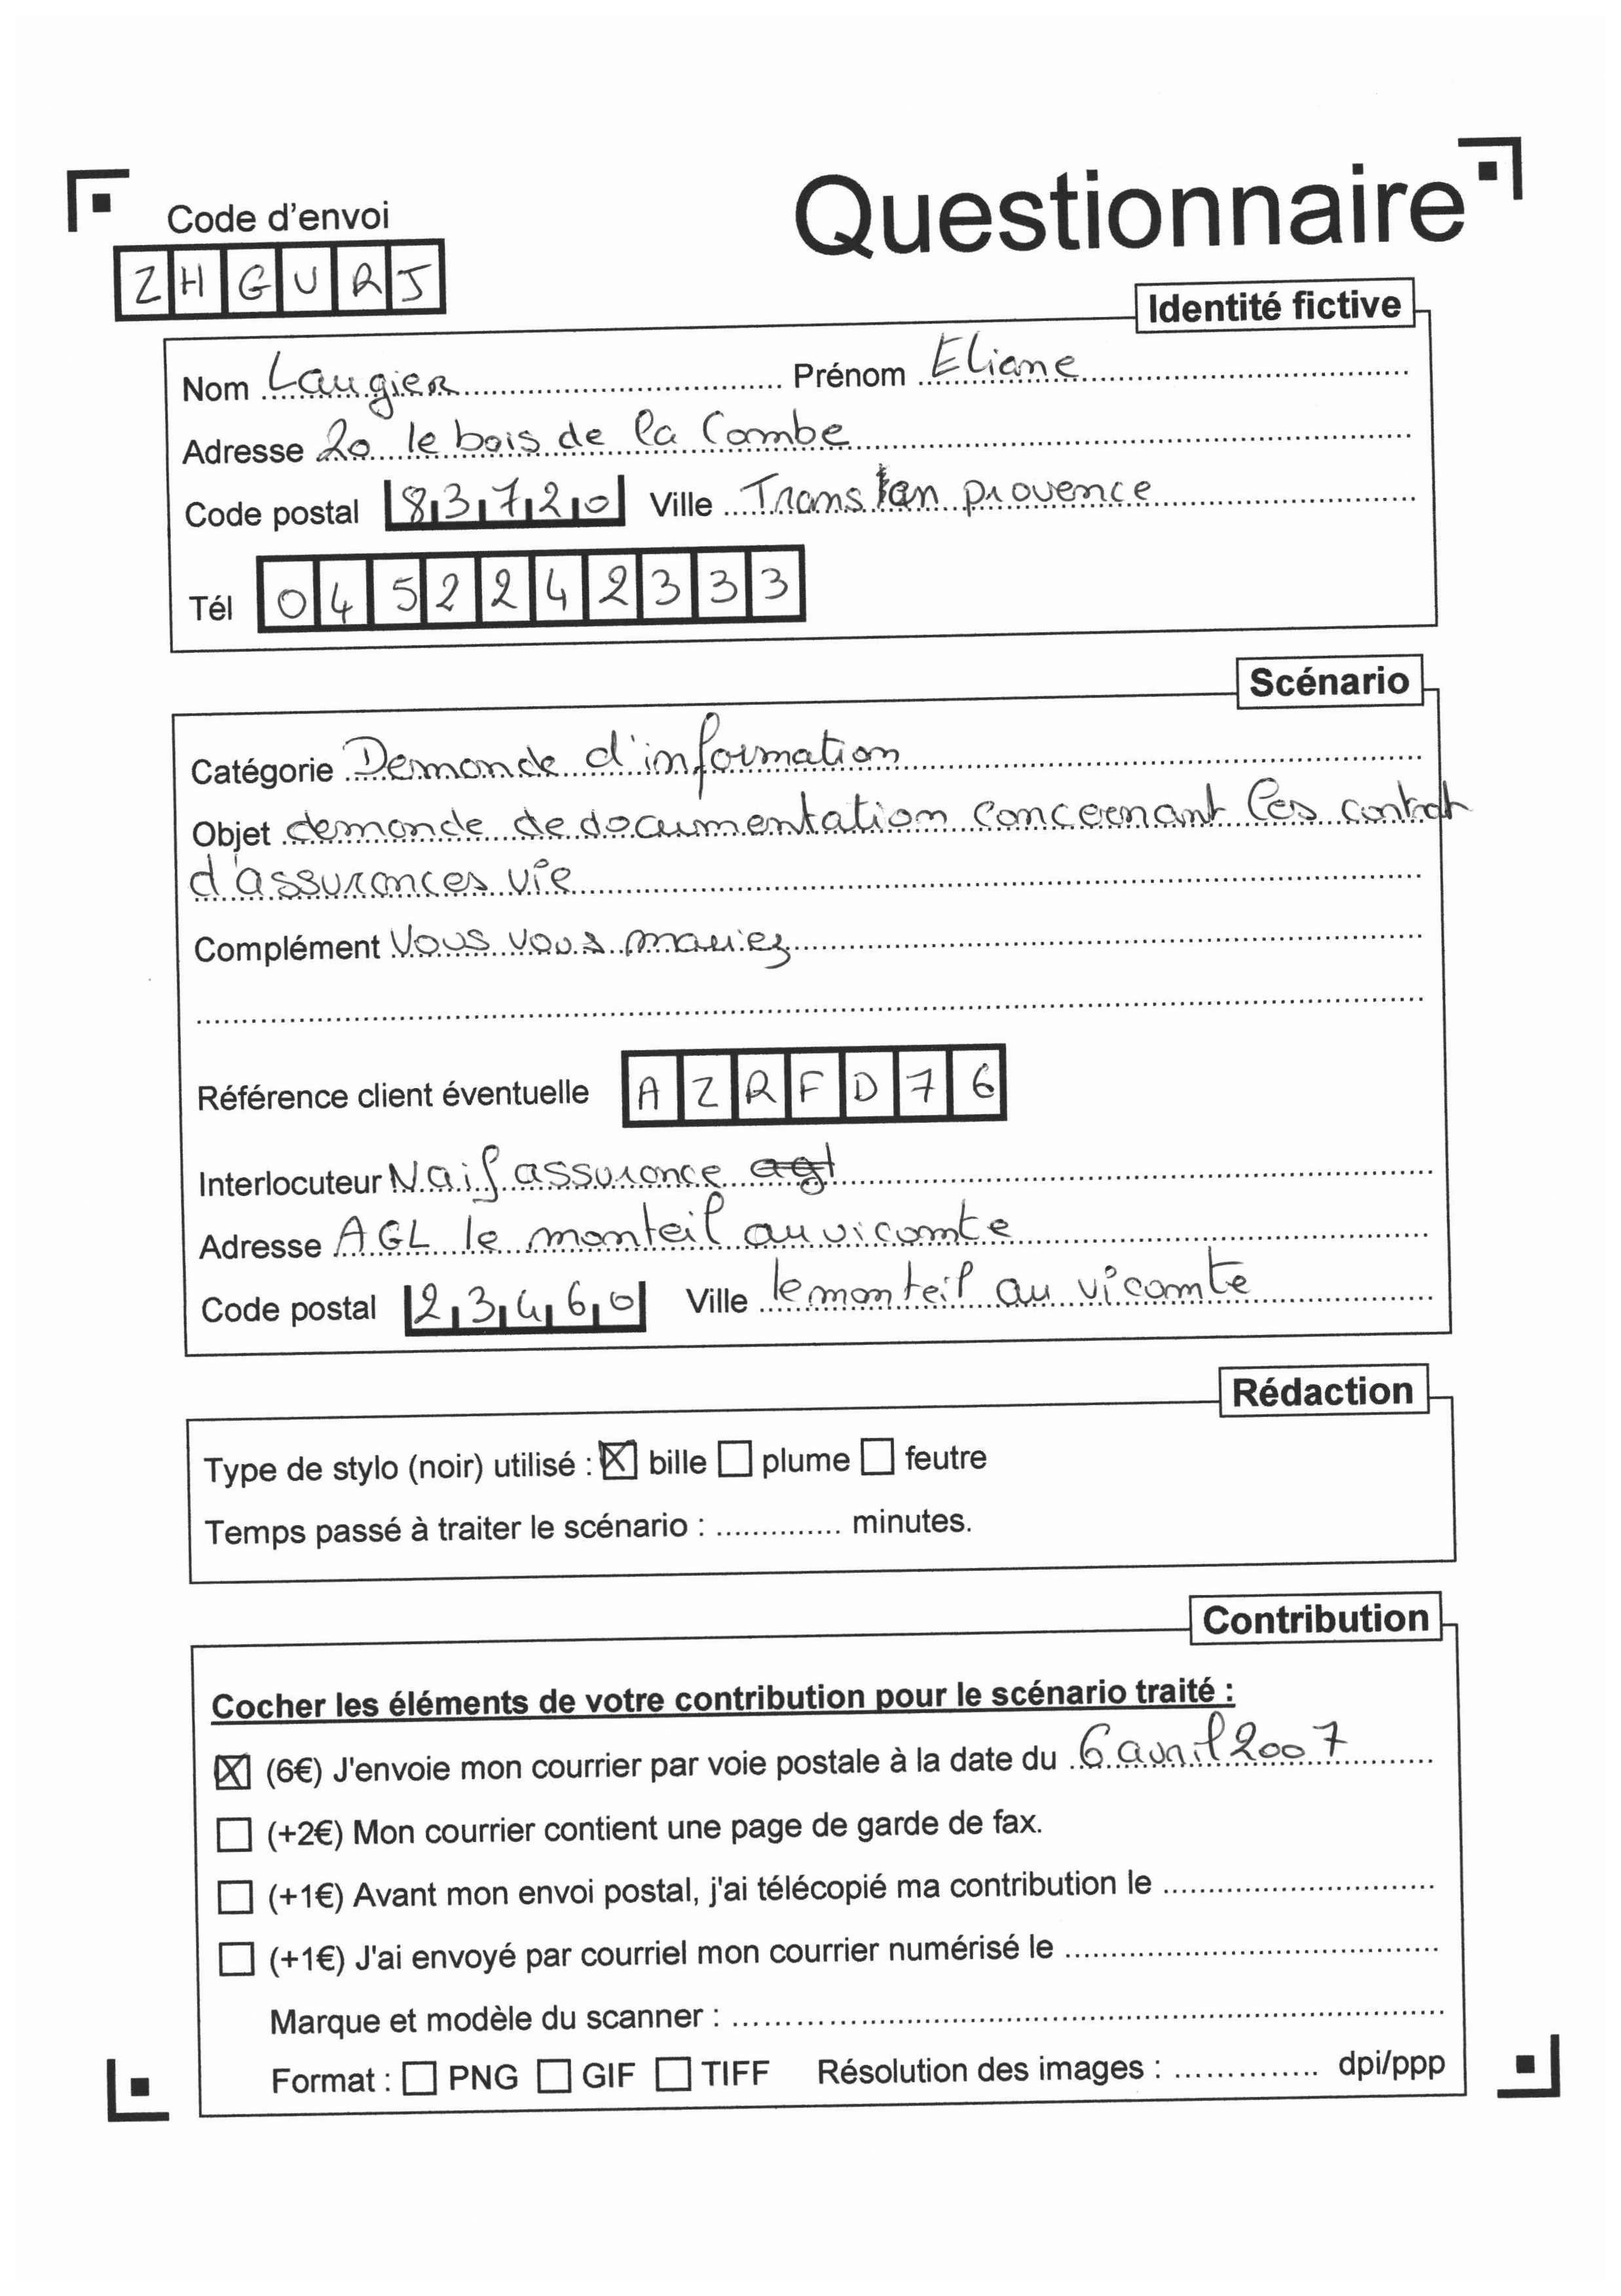 Code d'envoi
Questionnaire
ZHGURJ
Identité fictive
Nom Laugier Prénom Eliane
Adresse 20 le bois de la Combe
Code postal 83720 Ville Trans en provence
Tél 0452242333
Scénario
Catégorie Demande d'information
Objet demande de documentation concernant les contrat
d'assurances vie
Complément Vous vous mariez
Référence client éventuelle AZRFD76
Interlocuteur Naif assurance agt
Adresse AGL le monteil au vicomte
Code postal 23460 Ville le monteil au vicomte
Rédaction
Type de stylo (noir) utilisé : ☒ bille ☐ plume ☐ feutre
Temps passé à traiter le scénario : .............. minutes.
Contribution
Cocher les éléments de votre contribution pour le scénario traité :
☒ (6€) J'envoie mon courrier par voie postale à la date du 6 avril 2007
☐ (+2€) Mon courrier contient une page de garde de fax.
☐ (+1€) Avant mon envoi postal, j'ai télécopié ma contribution le ..............................
☐ (+1€) J'ai envoyé par courriel mon courrier numérisé le ..............................
Marque et modèle du scanner : ..............................
Format : ☐ PNG ☐ GIF ☐ TIFF Résolution des images : .............. dpi/ppp